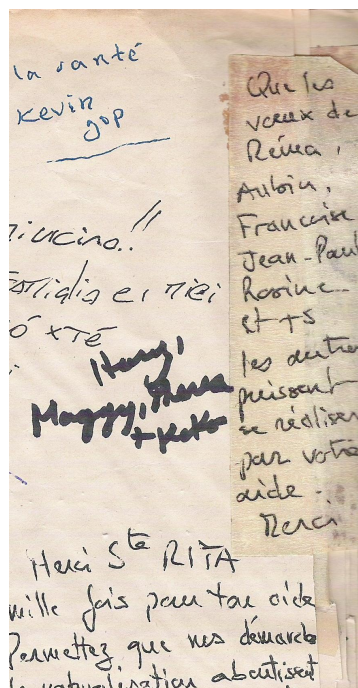 la santé
Kevin
jop
familia e miei
ó xté
Harry,
Maggy,
+ Keko
Que les
vœux de
Réina,
Aubin,
Francoise
Jean-Paul
Rosine
et ts
les autres
puissent
se réaliser
par votre
aide..
Merci
Merci Ste RITA
mille fois pour ton aide
Permettez que nos démarches
de naturalisation aboutissent